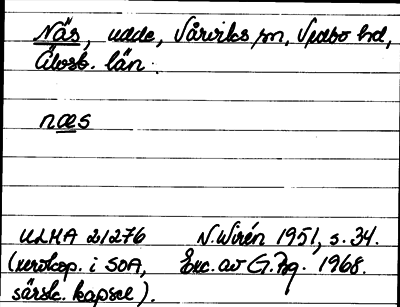 Näs, udde, Vårviks sn, Vedbo hd,
Älvsb. län.
næs
ULMA 21276 N. Wirén 1951, s. 34.
(xerokop. i SOA, Exc. av G. Hg. 1968.
särsk. kapsel).